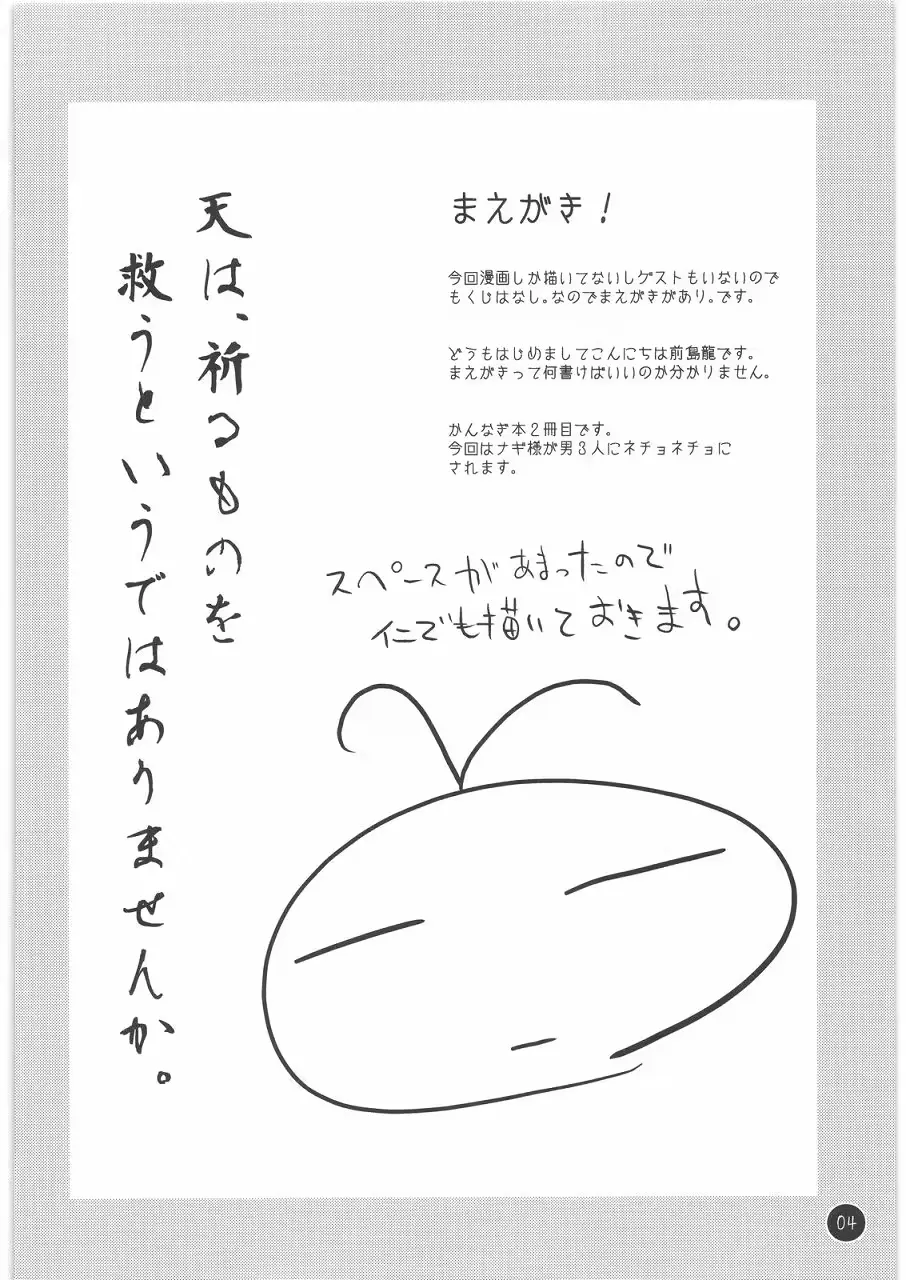 まえがき！
今回漫画しか描いてないしゲストもいないので
もくじはなし。なのでまえがきがあり。です。
どうもはじめましてこんにちは前島龍です。
まえがきって何書けばいいのか分かりません。
かんなぎ本2冊目です。
今回はナギ様が男3人にネチョネチョに
されます。
スペースがあまったので
仁でも描いておきます。
天は、祈るものを
救うというではありませんか。
04